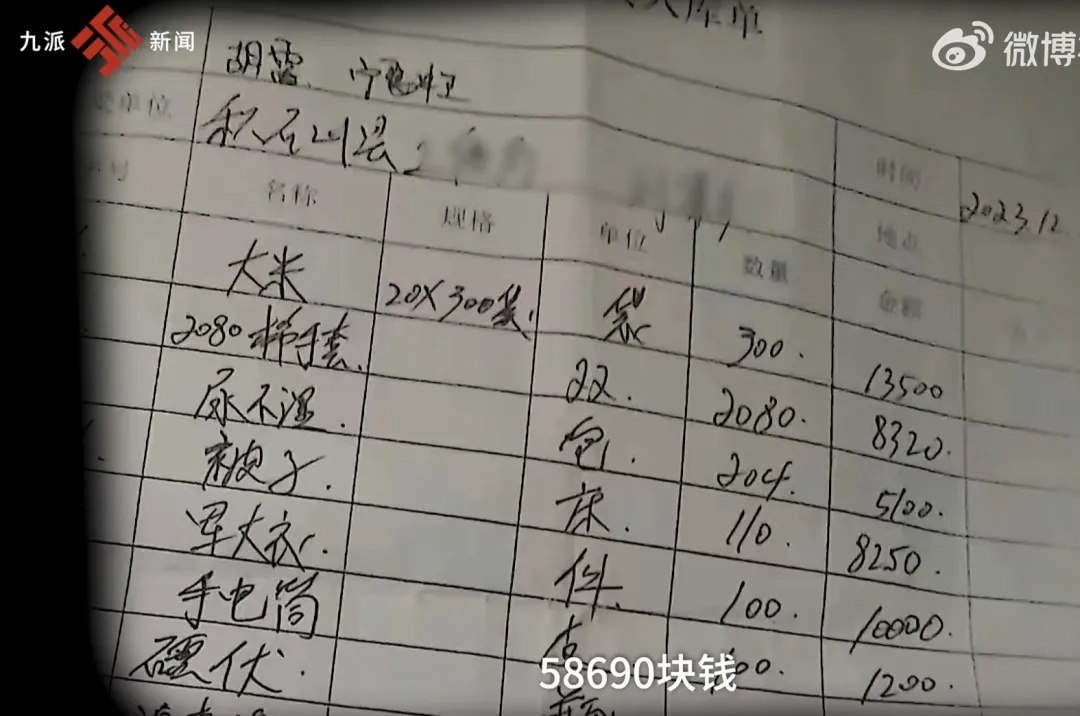 九派 新闻
微博
库单
胡霞 宁
单位
积石山县
时间 2023.12.
名称 规格 单位 数量 地点
金额
大米 20X300袋. 袋 300. 13500
2080 手套. 22. 2080. 8320.
尿不湿. 包. 204. 5100.
被子. 床. 110. 8250.
军大衣. 件. 100. 10000.
手电筒 00. 1200.
伏.
58690块钱